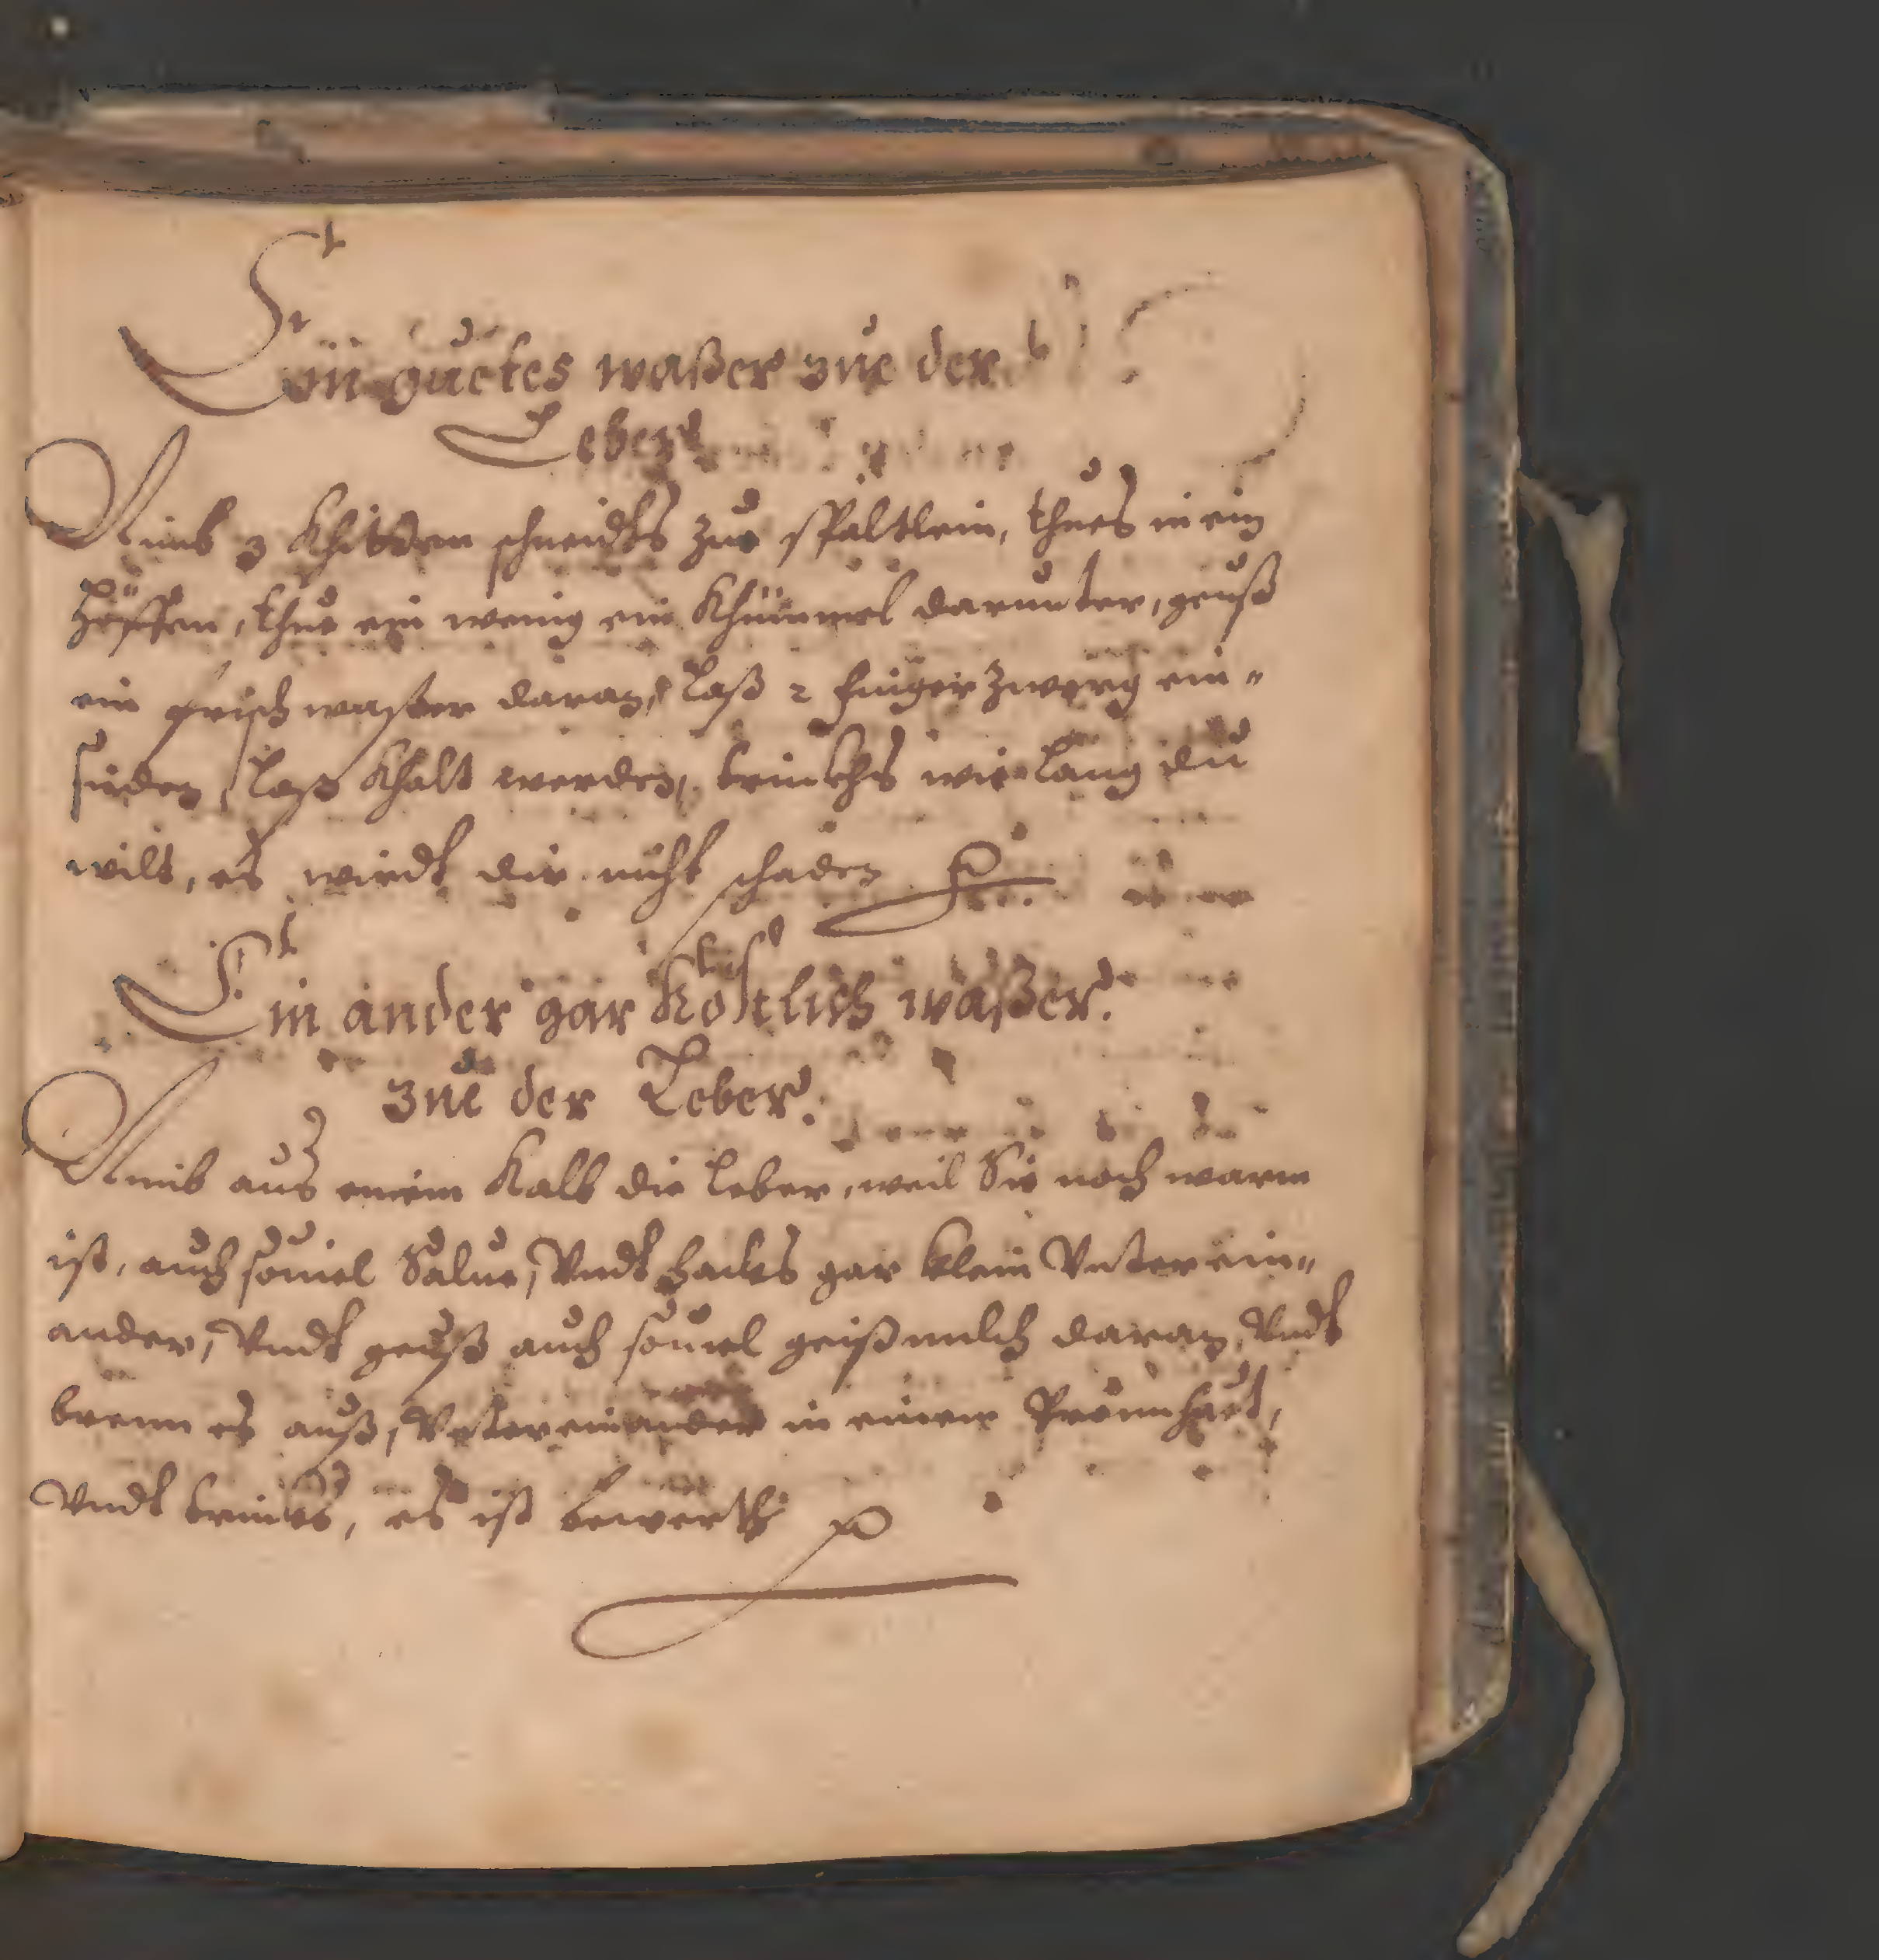 Ein guetes waßer zue der
Leber.
Nimb 3 Khitten schneidts zue spältlein, thues in ein
Häffen, thue ein wenig ein Khümmel darunter, geuß
ein frisch waßer daran, laß 2 finger zwerg ein-
sieden, laß Khalt werden, trinckhs wie lang du
wilt, es wirdt dir nicht schaden
Ein ander gar köstlich waßer.
zue der Leber.
Nimb aus einem Kalb die leber, weil Sie noch warm
ist, auch souiel Salue, Vndt hackes gar klein Vnter ein-
ander, Vndt geuß auch souiel geißmilch daran, Vndt
brenn es auß, Vntereinander in einem
Vndt trincks, es ist bewerth